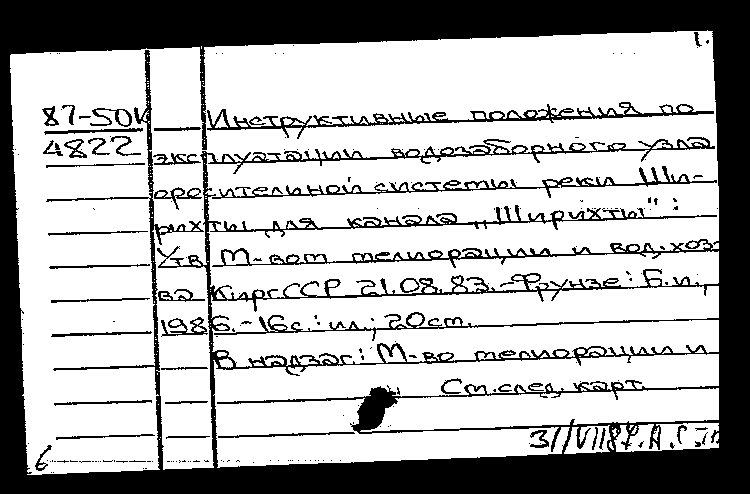 1.
87-50к Инструктивные положения по
4822 эксплуатации водозаборного узла
оросительной системы реки Ши-
рихты для канала „Ширихты":
Утв. М-вом мелиорации и вод. хоз-
ва КиргССР 21.08.83.-Фрунзе: Б.и.,
1986.-16с.: ил.; 20см.
В надзаг.: М-во мелиорации и
См. след. карт.
31/VII87.
6